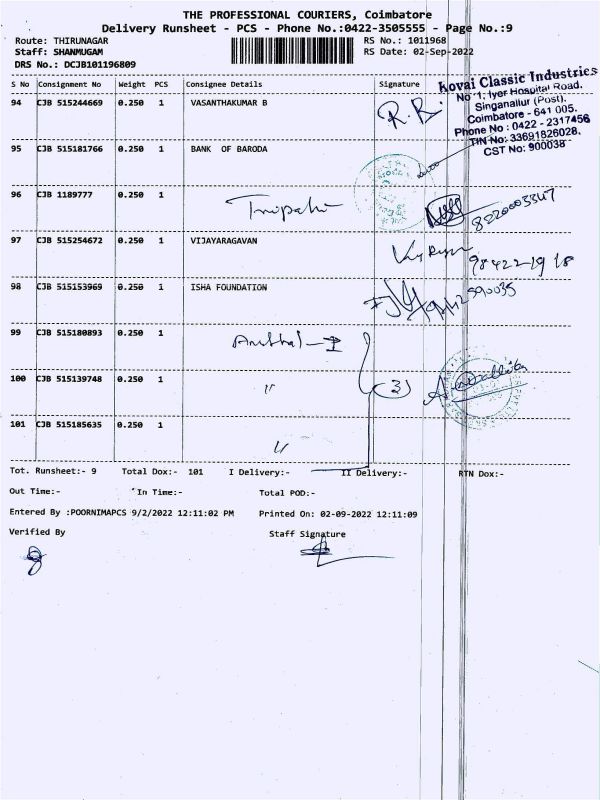 THE PROFESSIONAL COURIERS, Coimbatore
Delivery Runsheet - PCS - Phone No.:0422-3505555 - Page No.:9
Route: THIRUNAGAR RS No.: 1011968
Staff: SHANMUGAM RS Date: 02-Sep-2022
DRS No.: DCJB101196809
S No Consignment No Weight PCS Consignee Details Signature
Kovai Classic Industries
No 1, Iyer Hospital Road,
Singanallur (Post),
Coimbatore - 641 005.
Phone No : 0422 - 2317456
TIN No: 33691826028,
CST No: 900038
94 CJB 515244669 0.250 1 VASANTHAKUMAR B
95 CJB 515181766 0.250 1 BANK OF BARODA
96 CJB 1189777 0.250 1
97 CJB 515254672 0.250 1 VIJAYARAGAVAN
98422-19 18
98 CJB 515153969 0.250 1 ISHA FOUNDATION
99 CJB 515180893 0.250 1
100 CJB 515139748 0.250 1 " (3)
101 CJB 515185635 0.250 1 "
Tot. Runsheet:- 9 Total Dox:- 101 I Delivery:- II Delivery:- RTN Dox:-
Out Time:- In Time:- Total POD:-
Entered By :POORNIMAPCS 9/2/2022 12:11:02 PM Printed On: 02-09-2022 12:11:09
Verified By Staff Signature